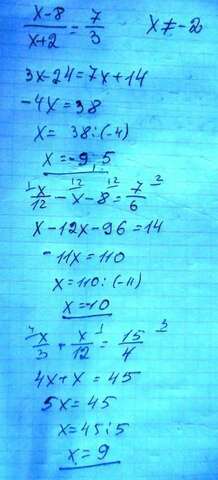 (x-8)/(x+2) = 7/3    x ≠ -2
3x-24=7x+14
-4x = 38
x = 38:(-4)
x = -9,5
¹⁾x/12 - ¹²⁾x - ¹²⁾8 = 7/6 ²⁾
x - 12x - 96 = 14
-11x = 110
x = 110:(-11)
x = -10
⁴⁾x/3 + x/12 ¹⁾ = 15/4 ³⁾
4x + x = 45
5x = 45
x = 45:5
x = 9